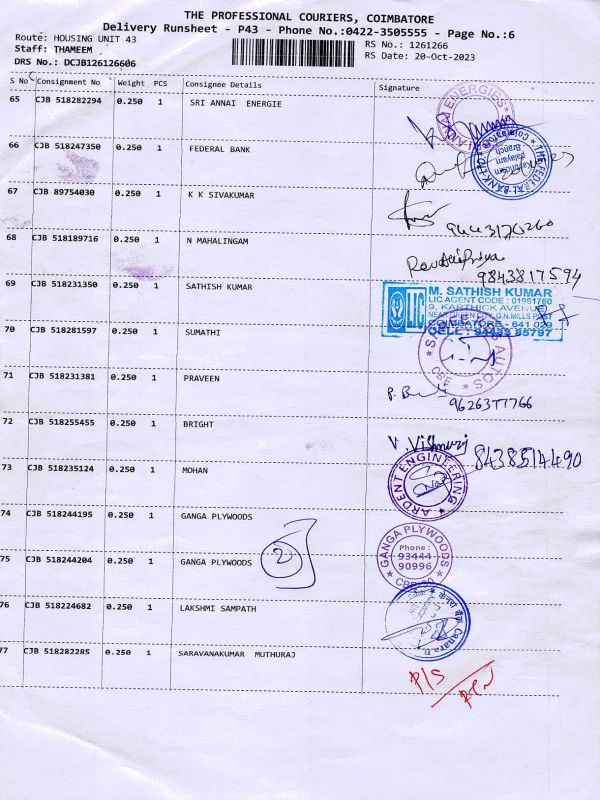 THE PROFESSIONAL COURIERS, COIMBATORE
Delivery Runsheet - P43 - Phone No.:0422-3505555 - Page No.:6
Route: HOUSING UNIT 43
RS No.: 1261266
Staff: THAMEEM
RS Date: 20-Oct-2023
DRS No.: DCJB126126606
S No Consignment No Weight PCS Consignee Details Signature
65 CJB 518282294 0.250 1 SRI ANNAI ENERGIE
ENERGIES
66 CJB 518247350 0.250 1 FEDERAL BANK
THE FEDERAL BANK LTD
Branch
67 CJB 89754030 0.250 1 K K SIVAKUMAR
68 CJB 518189716 0.250 1 N MAHALINGAM
9843817594
69 CJB 518231350 0.250 1 SATHISH KUMAR
LIC
M. SATHISH KUMAR
LIC AGENT CODE : 01981760
9, KARTHICK AVENUE
NEAR GREEN CITY, G.N.MILLS POST
COIMBATORE - 641 029
CELL : 94433 85797
70 CJB 518281597 0.250 1 SUMATHI
AUTOS
CBE
71 CJB 518231381 0.250 1 PRAVEEN
9626377766
72 CJB 518255455 0.250 1 BRIGHT
V. Vishnuraj 8438514490
73 CJB 518235124 0.250 1 MOHAN
ARDENT ENGINEERING
74 CJB 518244195 0.250 1 GANGA PLYWOODS
2
75 CJB 518244204 0.250 1 GANGA PLYWOODS
GANGA PLYWOODS
Phone :
93444
90996
76 CJB 518224682 0.250 1 LAKSHMI SAMPATH
केनरा बैंक Canara
77 CJB 518282285 0.250 1 SARAVANAKUMAR MUTHURAJ
P/S